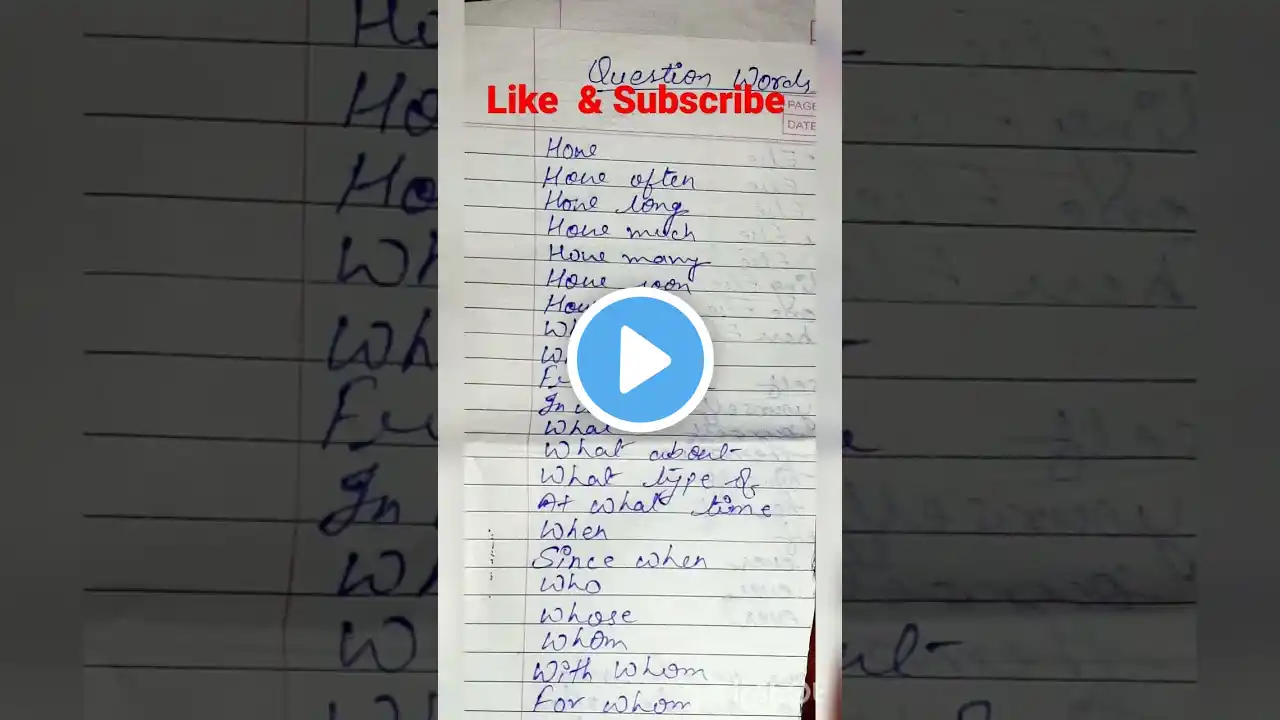 Question Words
Like & Subscribe
PAGE
DATE
How
How often
How long
How much
How many
How soon
How
What
What about
What type of
At what time
When
Since when
Who
Whose
Whom
With whom
For whom